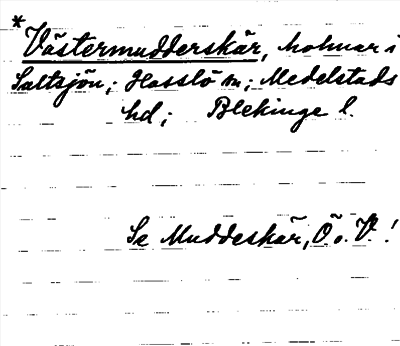 *
Västermudderskär, holmar i
Saltsjön; Hasslö sn; Medelstads
hd; Blekinge l.
Se Muddeskär, Ö. o. V.!